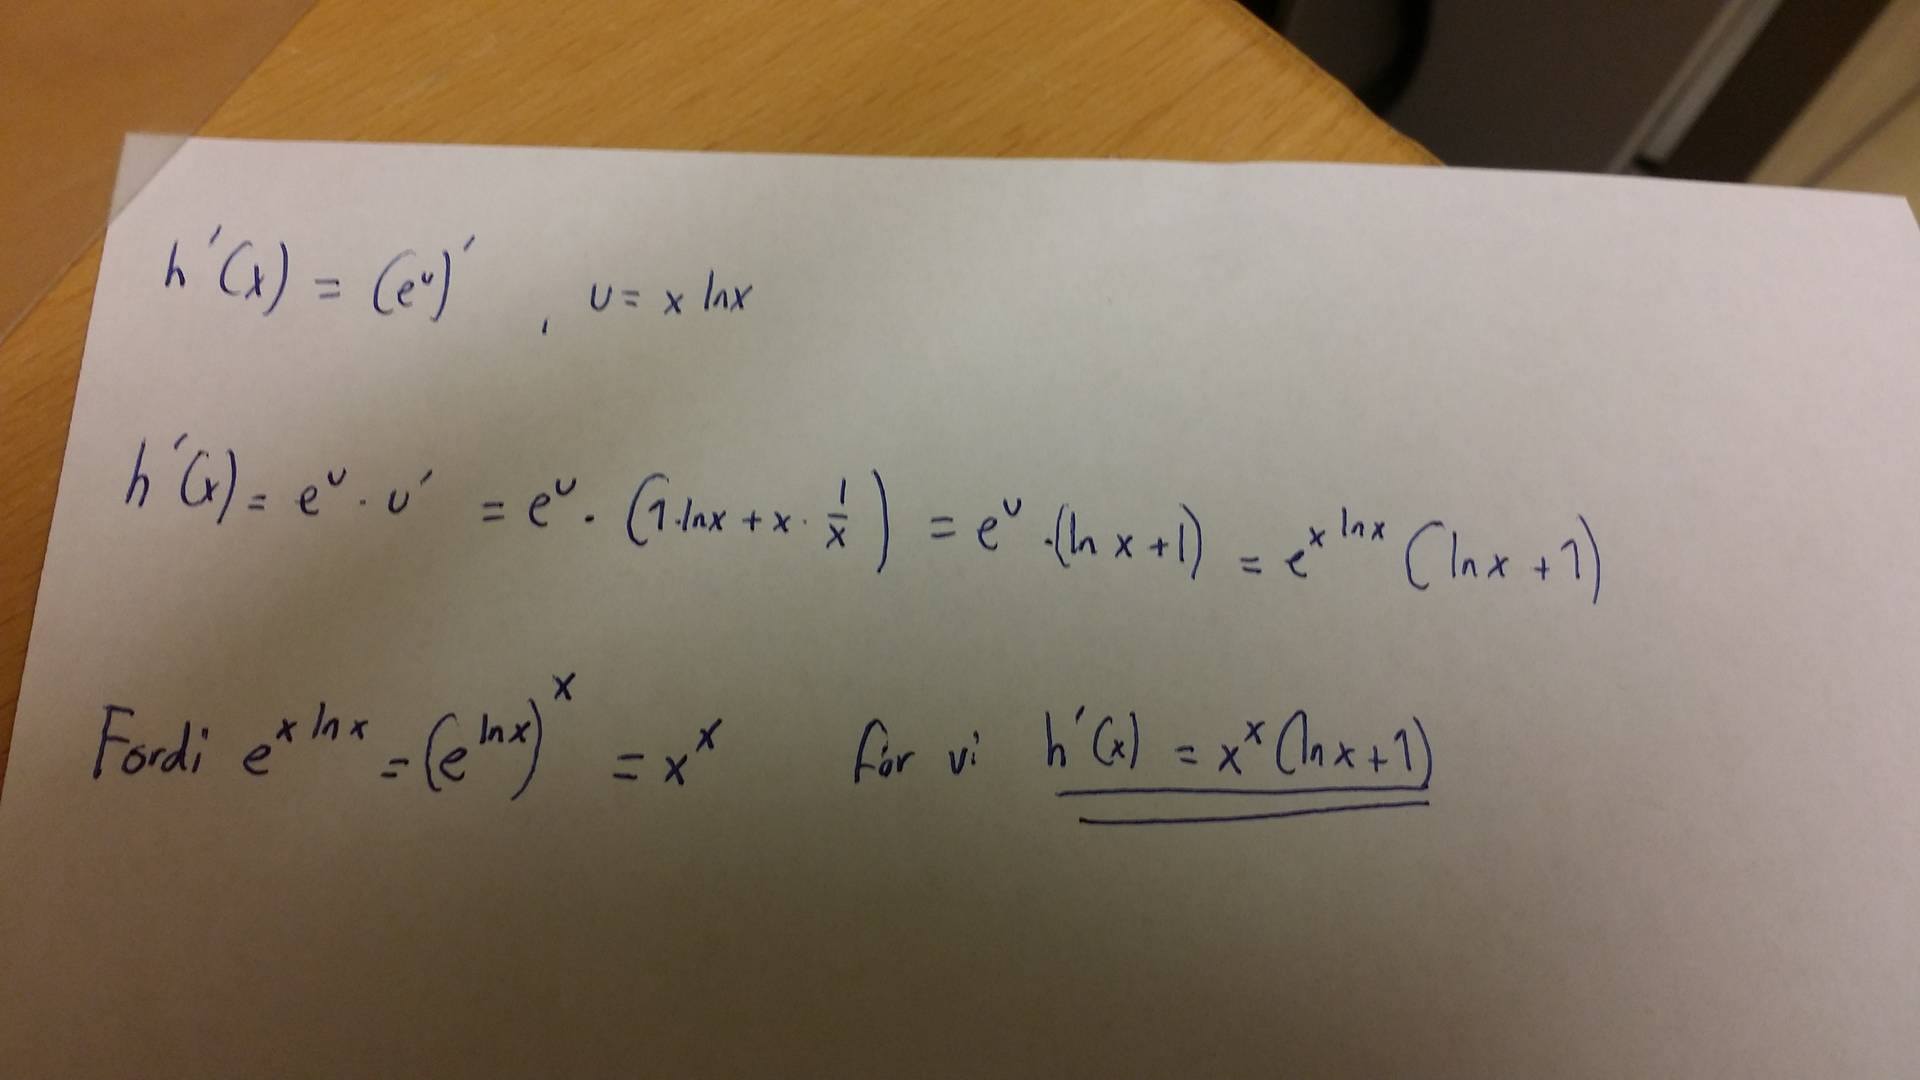 h'(x) = (e^u)' , u = x ln x
h'(x) = e^u · u' = e^u · (1·ln x + x · 1/x) = e^u · (ln x + 1) = e^{x ln x} (ln x + 1)
Fordi e^{x ln x} = (e^{ln x})^x = x^x får vi h'(x) = x^x (ln x + 1)